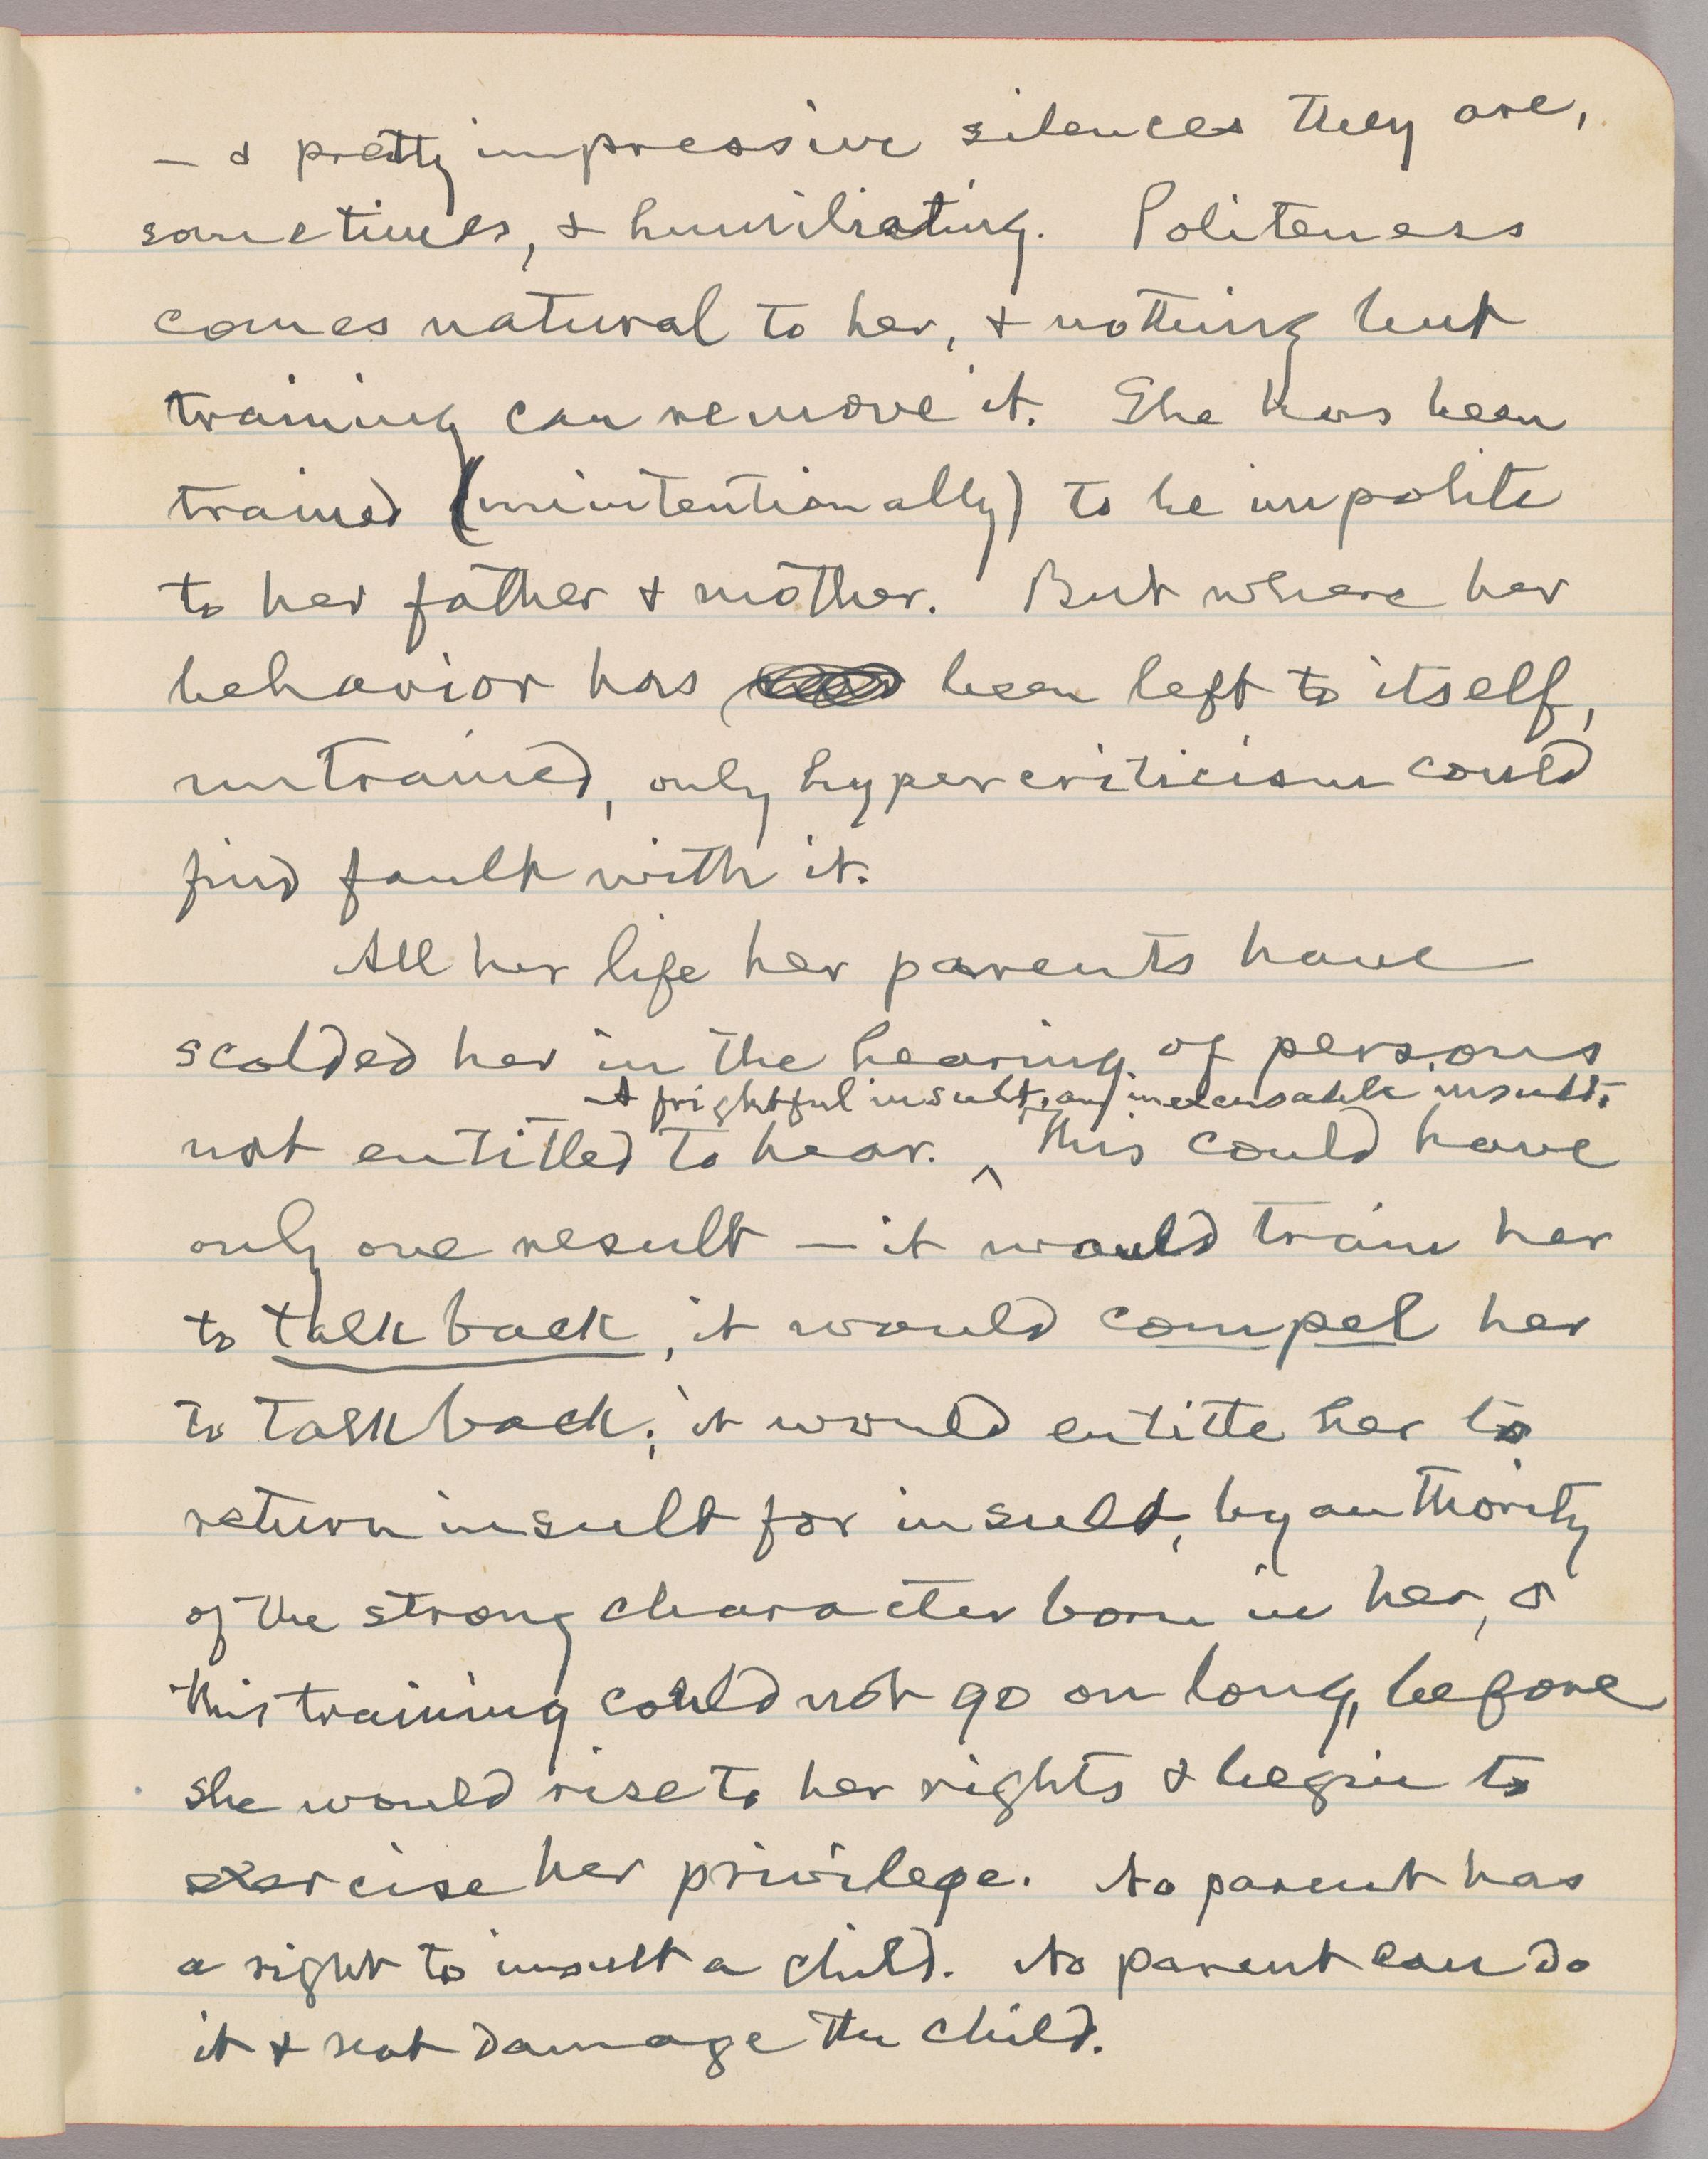 — & pretty impressive silences they are,
sometimes, & humiliating. Politeness
comes natural to her, & nothing but
training can remove it. She has been
trained (unintentionally) to be impolite
to her father & mother. But where her
behavior has been left to itself,
untrained, only hypercriticism could
find fault with it.
All her life her parents have
scolded her in the hearing of persons
A frightful insult, an inexcusable insult.
not entitled to hear. ^ This could have
only one result — it would train her
to talk back, it would compel her
to talk back; it would entitle her to
return insult for insult, by authority
of the strong character born in her, &
this training could not go on long, before
she would rise to her rights & begin to
exercise her privilege. No parent has
a right to insult a child. No parent can do
it & not damage the child.